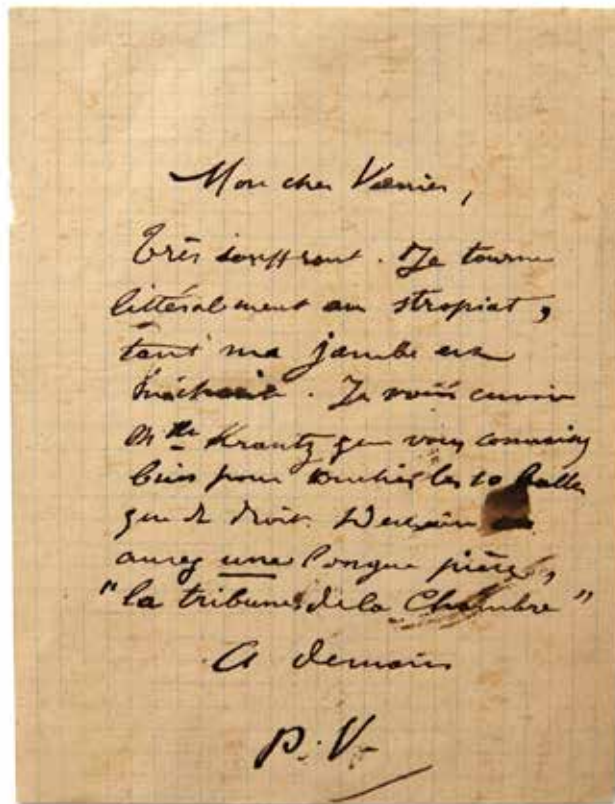 Mon cher Vanier,
Très souffrant. Je tourne
littéralement au stropiat,
tant ma jambe est
méchante. Je vous envoie
Mlle Krantz que vous connaissez
bien pour toucher les 10 balles
que de droit. Demain
aurez une longue pièce,
"la tribune de la Chambre"
A demain
P. V.